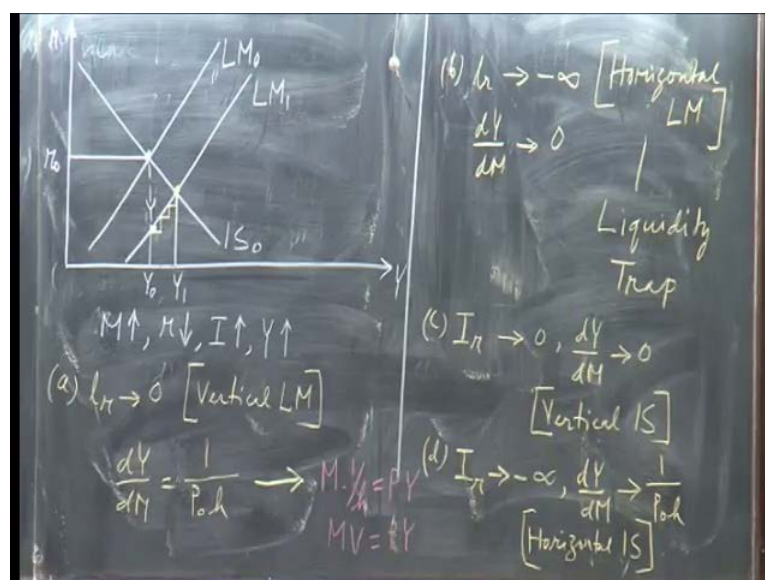 r
LM₀
LM₁
r₀
IS₀
Y₀ Y₁ Y
M↑, r↓, I↑, Y↑
(a) lᵣ → 0 [Vertical LM]
dY/dM = 1/P₀k → M·1/k = PY
MV = PY
(b) lᵣ → -∞ [Horizontal LM]
dY/dM → 0
Liquidity
Trap
(c) Iᵣ → 0, dY/dM → 0
[Vertical IS]
(d) Iᵣ → -∞, dY/dM → 1/P₀k
[Horizontal IS]